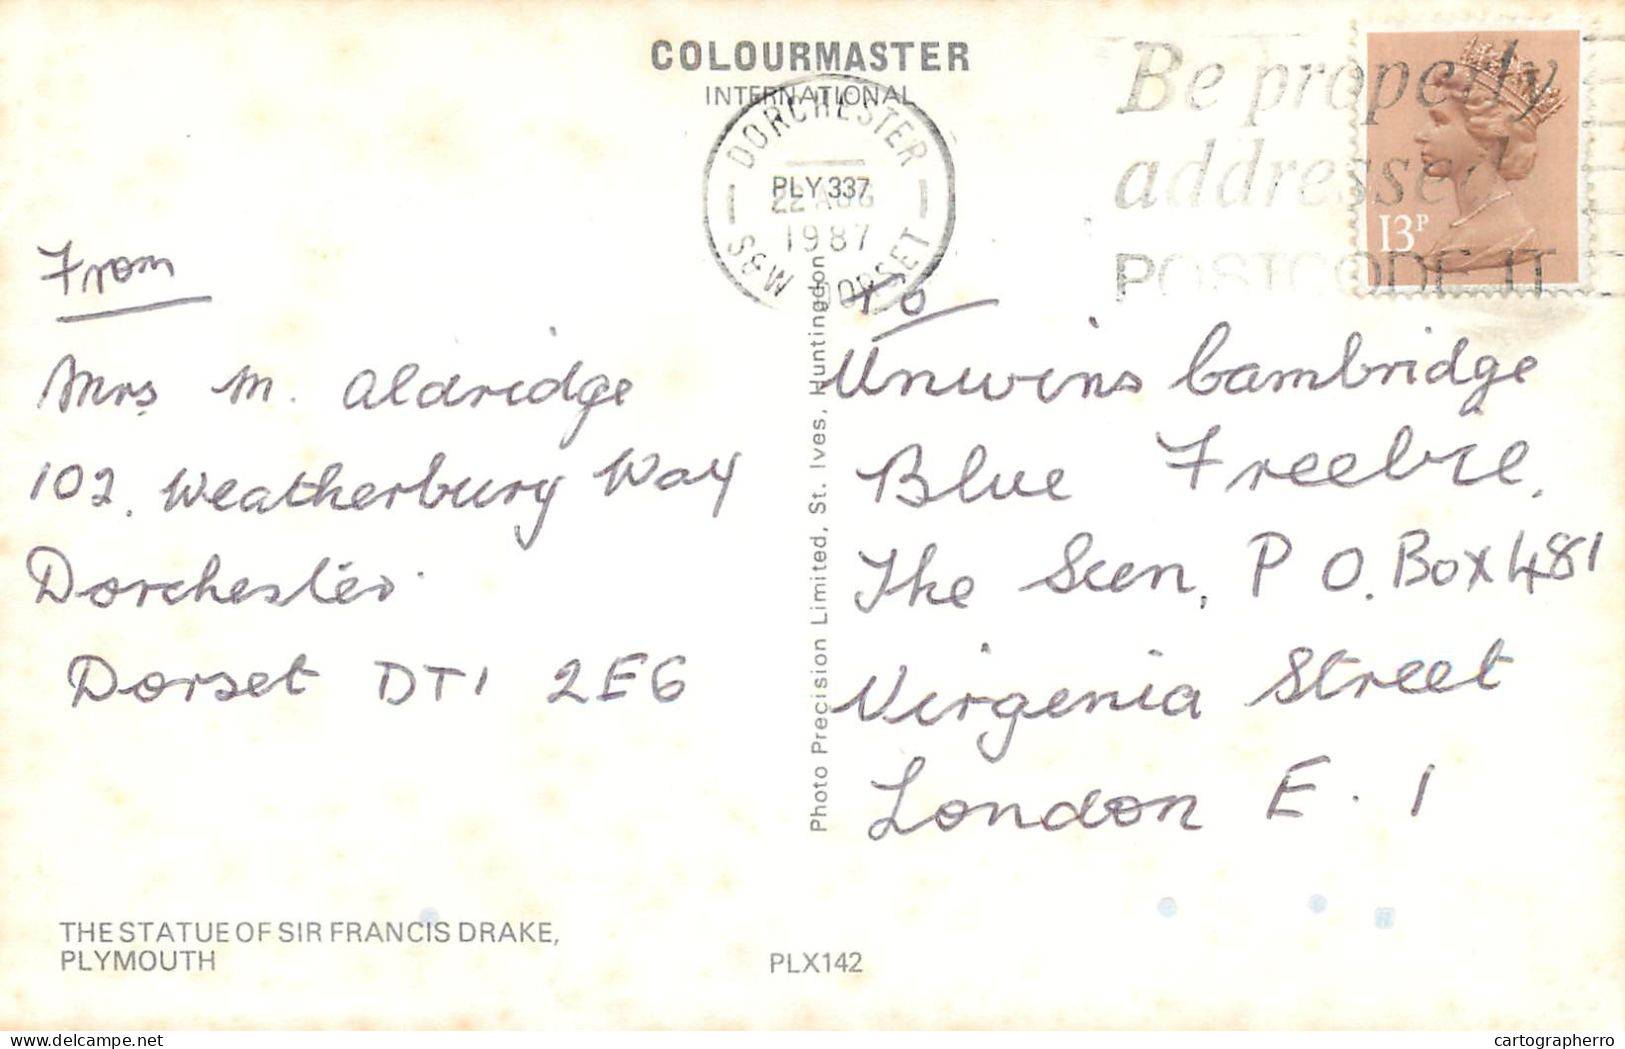 COLOURMASTER
INTERNATIONAL
DORCHESTER
PLY 337
22 AUG
1987
M&S DORSET
Be properly
addressed
POSTCODE IT
13P
From
Mrs M. Aldridge
102. Weatherbury Way
Dorchester.
Dorset DT1 2EG
Photo Precision Limited, St. Ives, Huntingdon
To
Unwins Cambridge
Blue Freebie.
The Sun, P O. Box 481
Virgenia Street
London E. 1
THE STATUE OF SIR FRANCIS DRAKE,
PLYMOUTH
PLX142
hippostcard.com
cartographerro